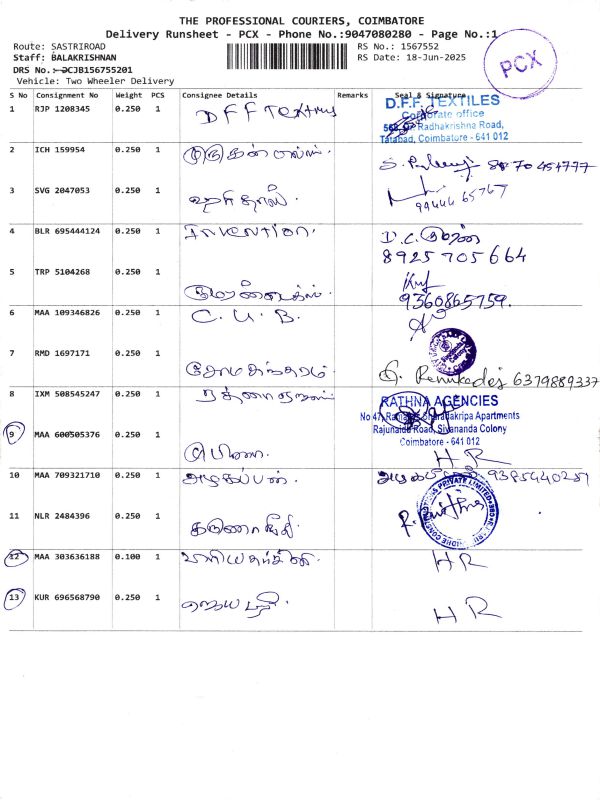 THE PROFESSIONAL COURIERS, COIMBATORE
Delivery Runsheet - PCX - Phone No.:9047080280 - Page No.:1
Route: SASTRIROAD
RS No.: 1567552
Staff: BALAKRISHNAN
RS Date: 18-Jun-2025
DRS No.: JCJB156755201
Vehicle: Two Wheeler Delivery
PCX
S No Consignment No Weight PCS Consignee Details Remarks Seal & Signature
1 RJP 1208345 0.250 1 DFF Textiles
D.F.F. TEXTILES
Corporate office
Radhakrishna Road,
Tatabad, Coimbatore - 641 012
2 ICH 159954 0.250 1 முருகன்
3 SVG 2047053 0.250 1 ஹரிதாஸ்.
9944465767
4 BLR 695444124 0.250 1 Invention.
D.C.
8925705664
5 TRP 5104268 0.250 1
9360865759.
6 MAA 109346826 0.250 1 C.U.B.
7 RMD 1697171 0.250 1 சோமசுந்தரம்.
G. Renukadevi 6379889337
8 IXM 508545247 0.250 1
RATHNA AGENCIES
No 47, Sharadakripa Apartments
Rajunaidu Road, Sivananda Colony
Coimbatore - 641 012
9 MAA 600505376 0.250 1
HR
10 MAA 709321710 0.250 1 அழகப்பன்.
9385440251
11 NLR 2484396 0.250 1
12 MAA 303636188 0.100 1
HR
13 KUR 696568790 0.250 1 ஜெயஸ்ரீ.
HR